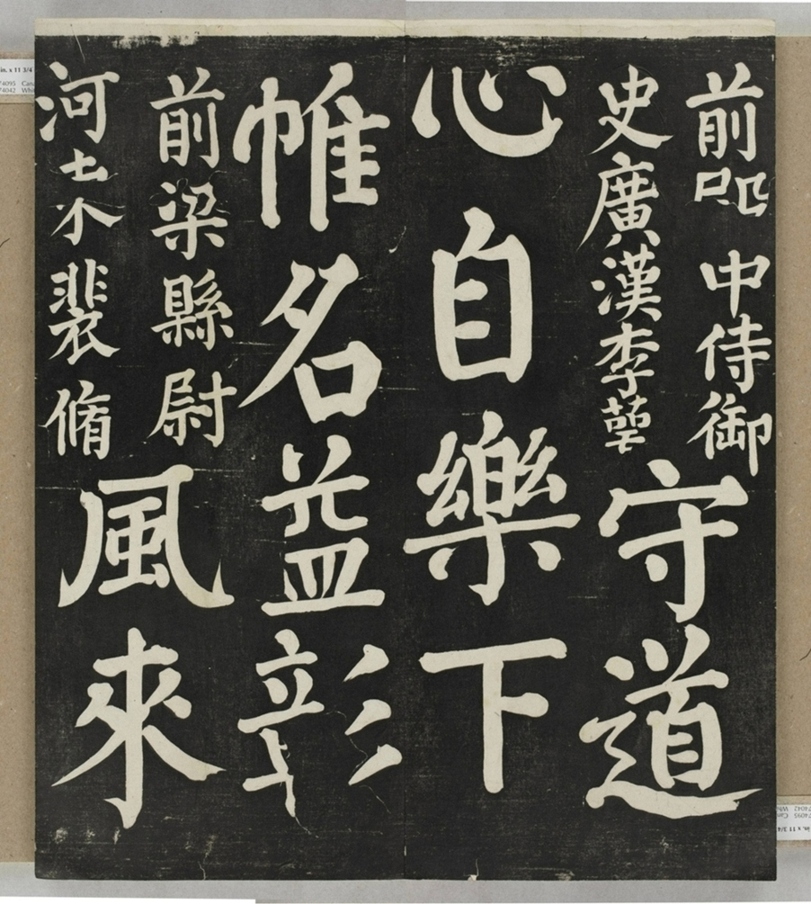 前中侍御
史廣漢李萼
守道
心自樂下
帷名益彰
前梁縣尉
河裴脩
風來